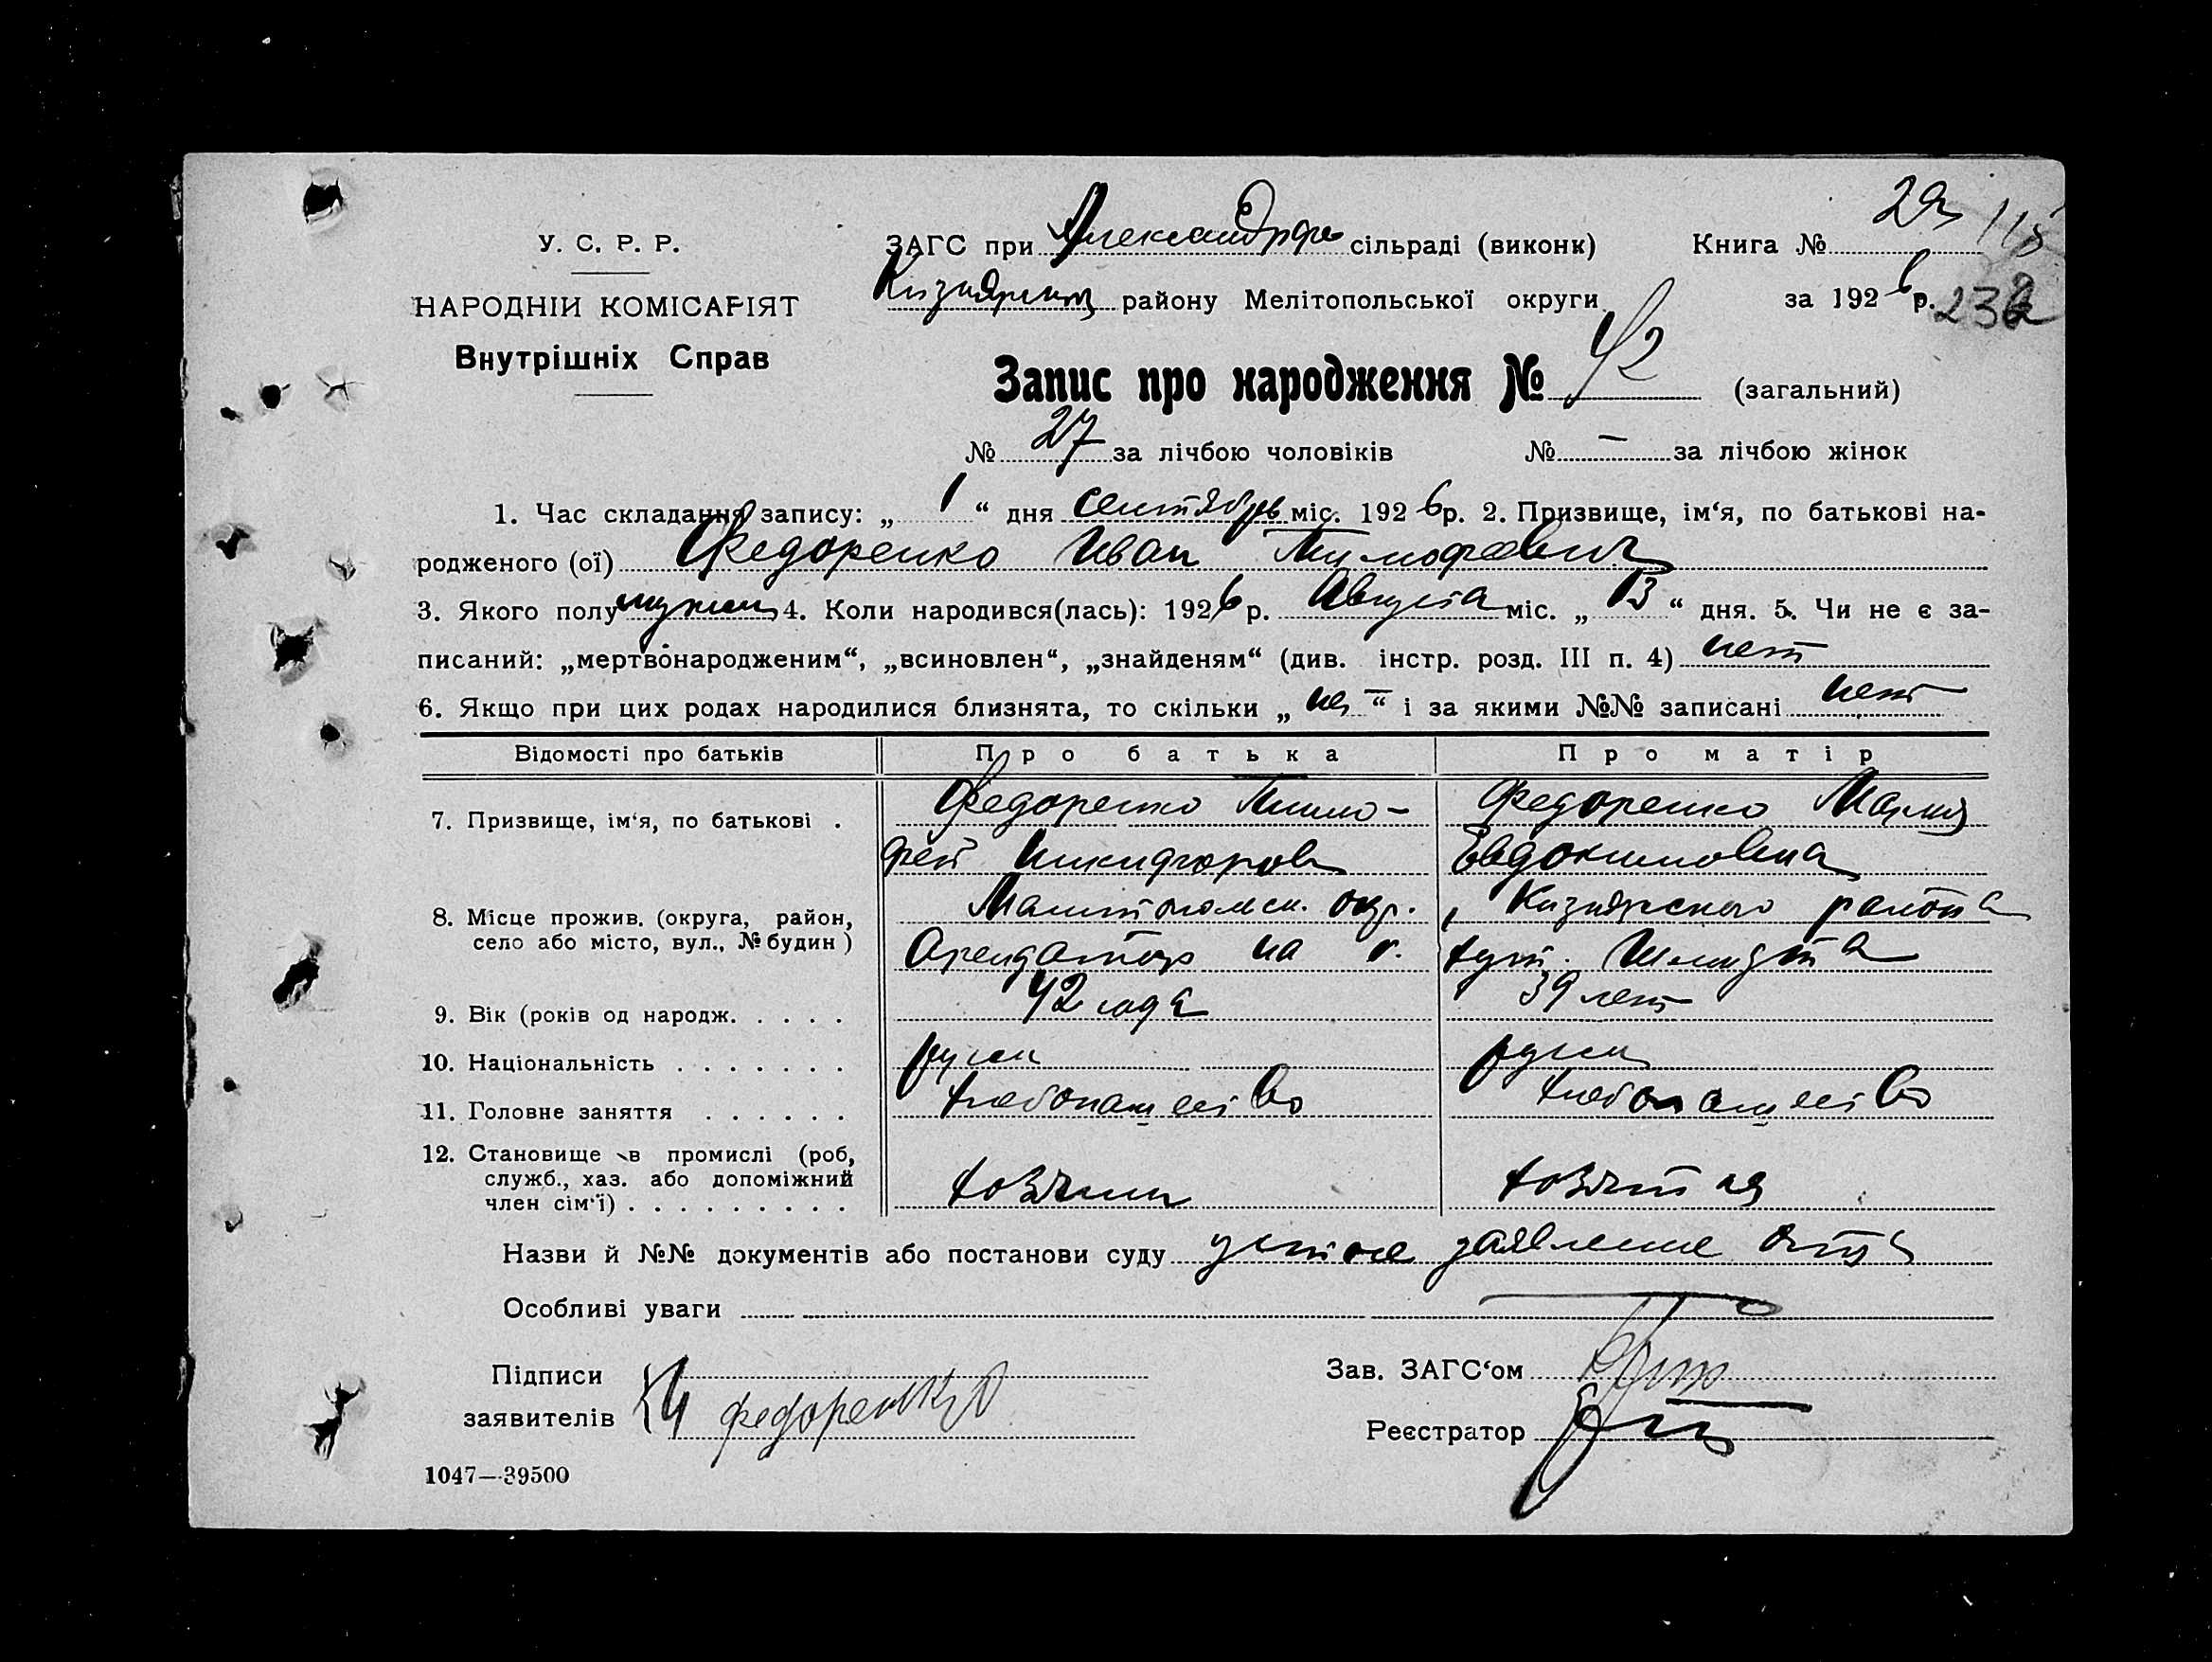 У. С. Р. Р.
НАРОДНІИ КОМІСАРІЯТ
Внутрішніх Справ
ЗАГС при Александрфе сільраді (виконк) Книга № 2а 115
Кизиярский району Мелітопольської округи за 1926 р. 232
Запис про народження № 42 (загальний)
№ 27 за лічбою чоловіків № — за лічбою жінок
1. Час складання запису: „ 1 “ дня сентября міс. 1926 р. 2. Призвище, ім‘я, по батькові на-
родженого (ої) Федоренко Иван Тимофеевич
3. Якого полу мужск 4. Коли народився(лась): 1926 р. Августа міс. „ 13 “ дня. 5. Чи не є за-
писаний: „мертвонародженим“, „всиновлен“, „знайденям“ (див. інстр. розд. III п. 4) нет
6. Якщо при цих родах народилися близнята, то скільки „ нет “ і за якими №№ записані нет
Відомості про батьків Про батька Про матір
7. Призвище, ім‘я, по батькові . Федоренко Тимо- Федоренко Мария
фей Никифоров Евдокимовна
8. Місце прожив. (округа, район, Мелитопольск. окр. , Кизиярского района
село або місто, вул., № будин ) Арендатор на х. хут. Шмидта
9. Вік (років од народж. . . . . 42 года 39 лет
10. Національність . . . . . . . русск русск
11. Головне заняття . . . . . . хлебопашество хлебопашество
12. Становище в промислі (роб,
служб., хаз. або допоміжний
член сім‘ї) . . . . . . . . . хозяин хозяйка
Назви й №№ документів або постанови суду устное заявление отца
Особливі уваги
Підписи Зав. ЗАГС‘ом
заявителів Федоренко
Реєстратор
1047—39500